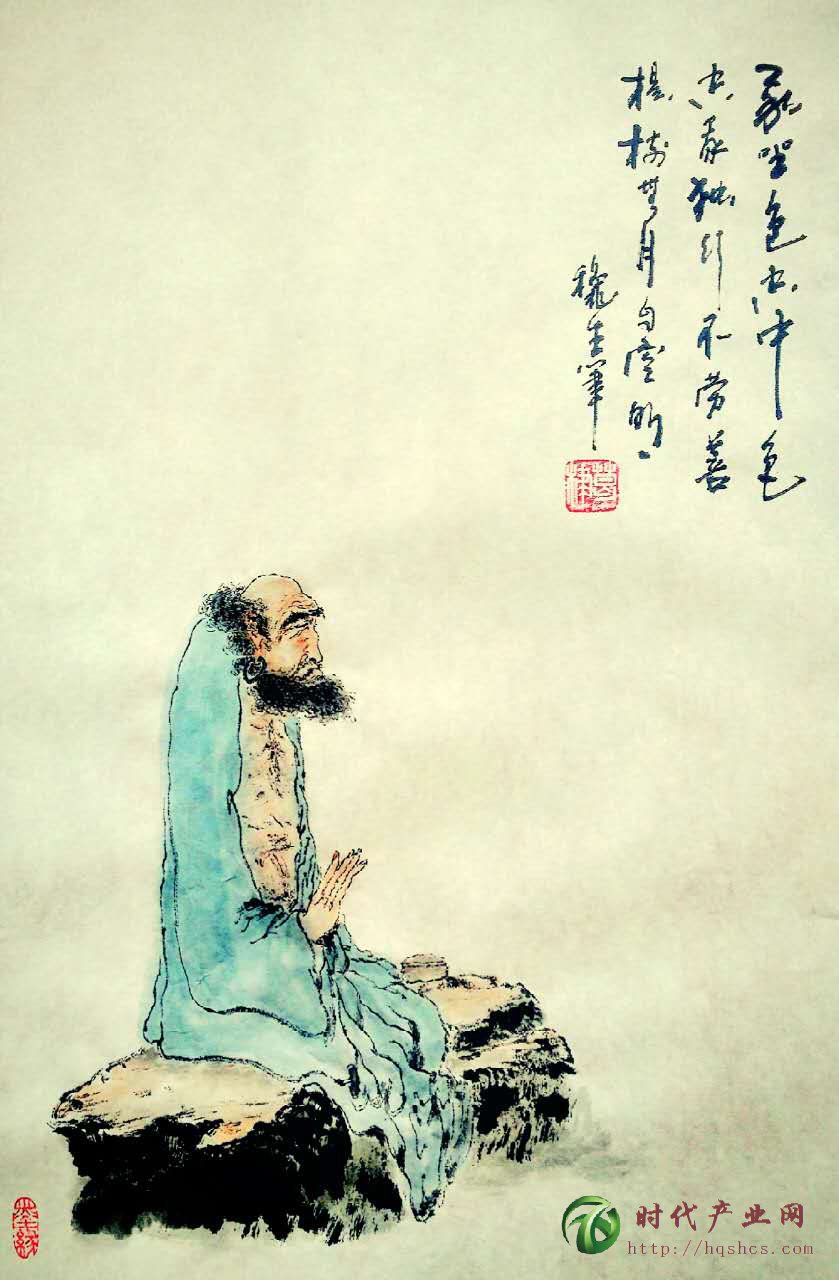 坐色空中色
空我独行不劳菩
提树無月自明
穆生筆
时代产业网
http://hqshcs.com